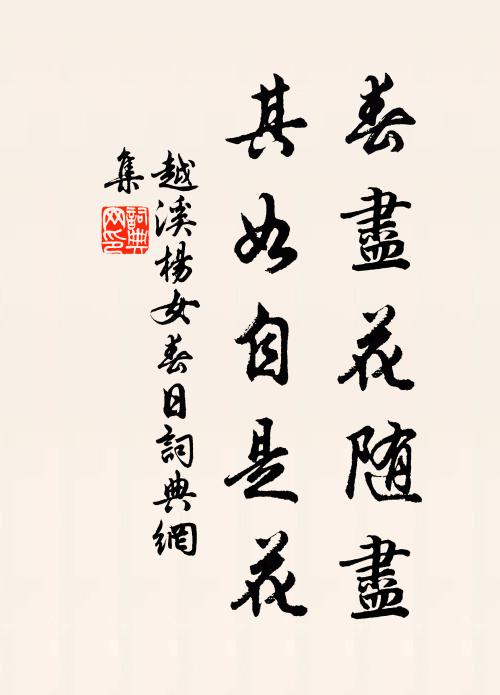 春盡花随盡
其如自是花
越溪楊女春日詞典網
集
詞典網印